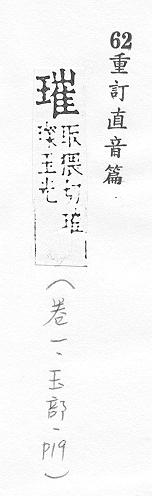 62重訂直音篇
璀
取猥切璀
璨玉光
（卷一、玉部、p19）